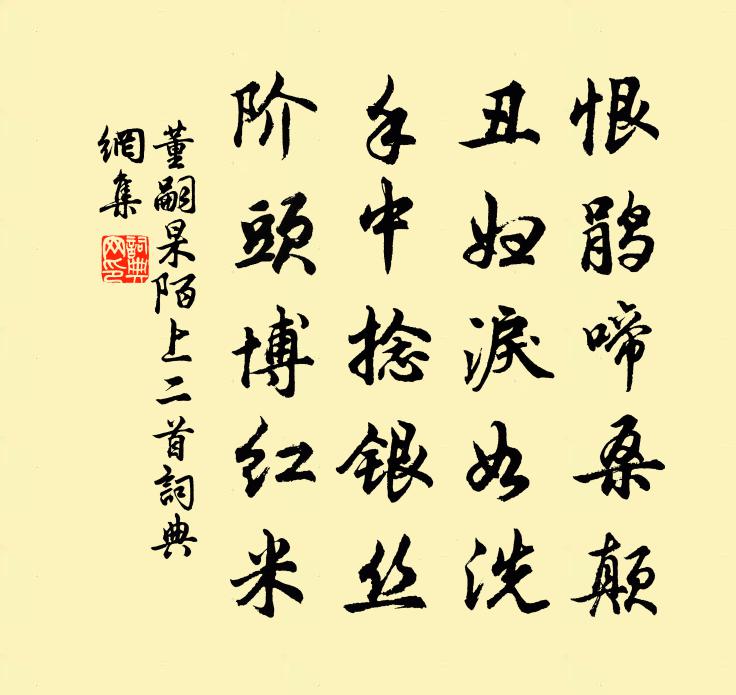 恨鹃啼桑颠
丑妇淚如洗
手中捻银丝
阶頭博红米
董嗣杲陌上二首詞典
網集
詞典
网印